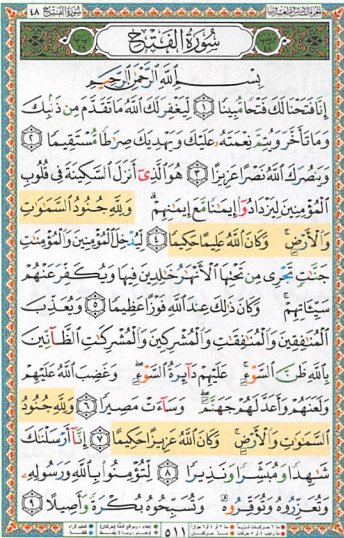 ٤٨ سُورَةُ الفَتْحِ
سُورَةُ الفَتْحِ
بِسْمِ اللَّهِ الرَّحْمَٰنِ الرَّحِيمِ
إِنَّا فَتَحْنَا لَكَ فَتْحًا مُّبِينًا ١ لِّيَغْفِرَ لَكَ اللَّهُ مَا تَقَدَّمَ مِن ذَنۢبِكَ
وَمَا تَأَخَّرَ وَيُتِمَّ نِعْمَتَهُۥ عَلَيْكَ وَيَهْدِيَكَ صِرَٰطًا مُّسْتَقِيمًا ٢
وَيَنصُرَكَ اللَّهُ نَصْرًا عَزِيزًا ٣ هُوَ الَّذِىٓ أَنزَلَ السَّكِينَةَ فِى قُلُوبِ
الْمُؤْمِنِينَ لِيَزْدَادُوٓا۟ إِيمَٰنًا مَّعَ إِيمَٰنِهِمْ ۗ وَلِلَّهِ جُنُودُ السَّمَٰوَٰتِ
وَالْأَرْضِ ۚ وَكَانَ اللَّهُ عَلِيمًا حَكِيمًا ٤ لِّيُدْخِلَ الْمُؤْمِنِينَ وَالْمُؤْمِنَٰتِ
جَنَّٰتٍ تَجْرِى مِن تَحْتِهَا الْأَنْهَٰرُ خَٰلِدِينَ فِيهَا وَيُكَفِّرَ عَنْهُمْ
سَيِّـَٔاتِهِمْ ۚ وَكَانَ ذَٰلِكَ عِندَ اللَّهِ فَوْزًا عَظِيمًا ٥ وَيُعَذِّبَ
الْمُنَٰفِقِينَ وَالْمُنَٰفِقَٰتِ وَالْمُشْرِكِينَ وَالْمُشْرِكَٰتِ الظَّآنِّينَ
بِاللَّهِ ظَنَّ السَّوْءِ ۚ عَلَيْهِمْ دَآئِرَةُ السَّوْءِ ۖ وَغَضِبَ اللَّهُ عَلَيْهِمْ
وَلَعَنَهُمْ وَأَعَدَّ لَهُمْ جَهَنَّمَ ۖ وَسَآءَتْ مَصِيرًا ٦ وَلِلَّهِ جُنُودُ
السَّمَٰوَٰتِ وَالْأَرْضِ ۚ وَكَانَ اللَّهُ عَزِيزًا حَكِيمًا ٧ إِنَّآ أَرْسَلْنَٰكَ
شَٰهِدًا وَمُبَشِّرًا وَنَذِيرًا ٨ لِّتُؤْمِنُوا۟ بِاللَّهِ وَرَسُولِهِۦ
وَتُعَزِّرُوهُ وَتُوَقِّرُوهُ ۚ وَتُسَبِّحُوهُ بُكْرَةً وَأَصِيلًا ٩
٥١١